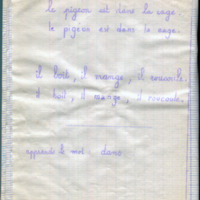 le pigeon est dans la cage.
le pigeon est dans la cage.
il boit, il mange, il roucoule.
il boit, il mange, il roucoule.
apprends le mot : dans